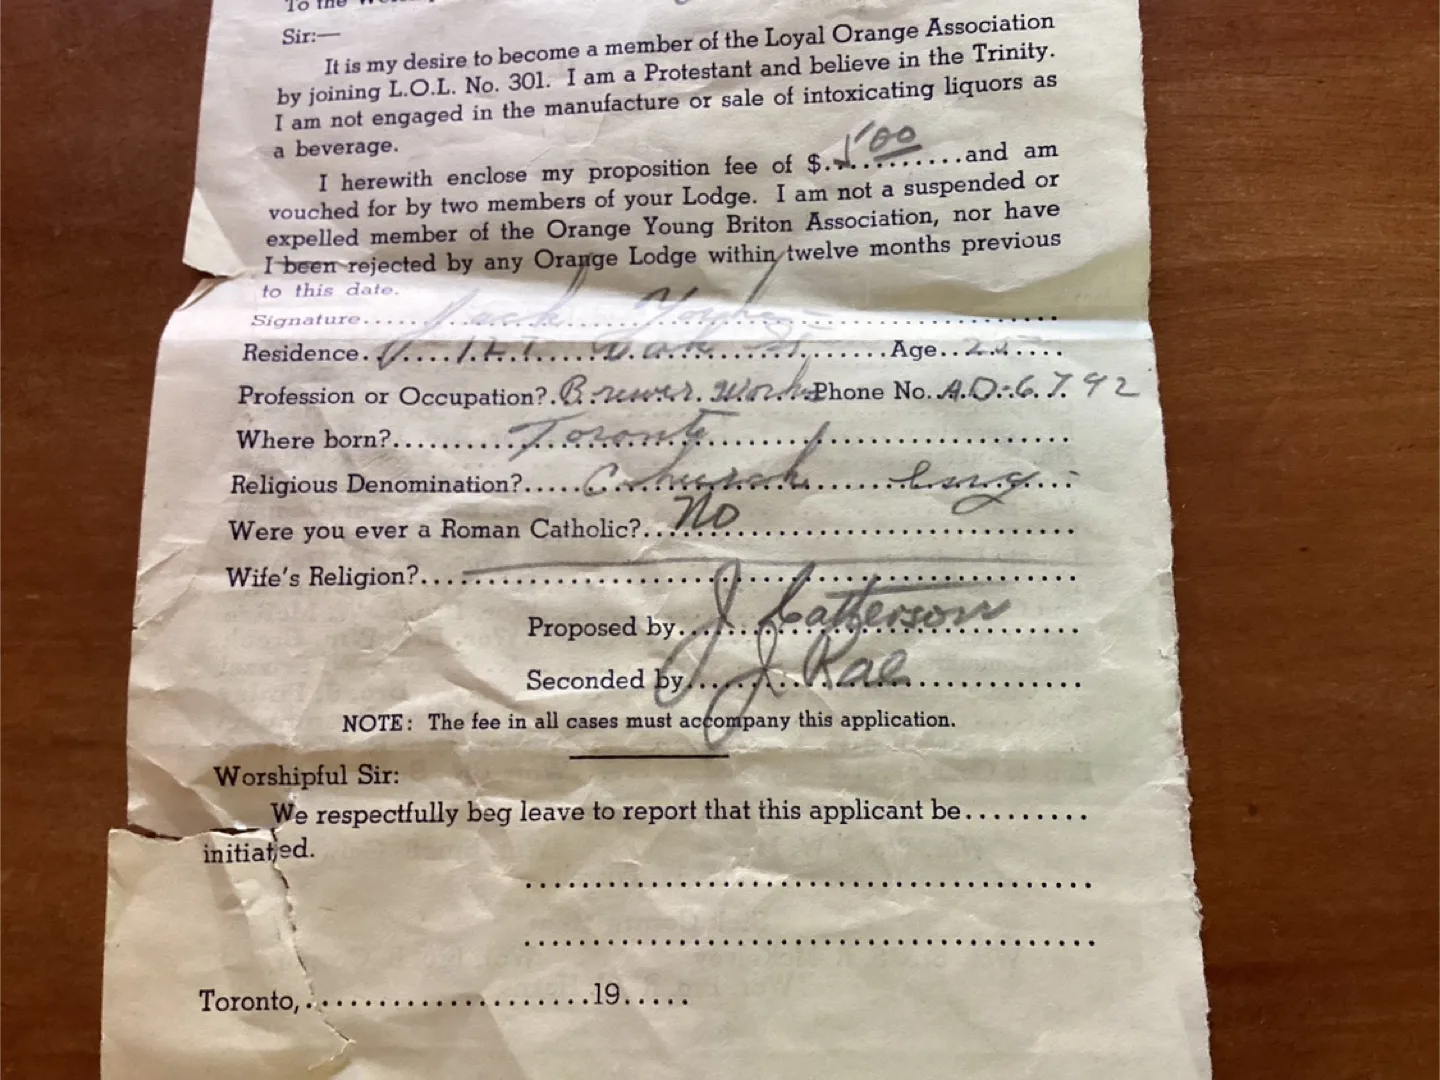 To the
Sir:—
It is my desire to become a member of the Loyal Orange Association
by joining L.O.L. No. 301. I am a Protestant and believe in the Trinity.
I am not engaged in the manufacture or sale of intoxicating liquors as
a beverage.
I herewith enclose my proposition fee of $..........and am
vouched for by two members of your Lodge. I am not a suspended or
expelled member of the Orange Young Briton Association, nor have
I been rejected by any Orange Lodge within twelve months previous
to this date.
Signature.... Jack
Residence. Oak St Age..
Profession or Occupation?. Brewer. Works Phone No. A.D.-6.7.92
Where born?.... Toronto
Religious Denomination?..... Church Eng
Were you ever a Roman Catholic?.. No
Wife's Religion?....
Proposed by... J
Seconded by... J Rae
NOTE: The fee in all cases must accompany this application.
Worshipful Sir:
We respectfully beg leave to report that this applicant be.........
initiated.
Toronto,.....................19.....